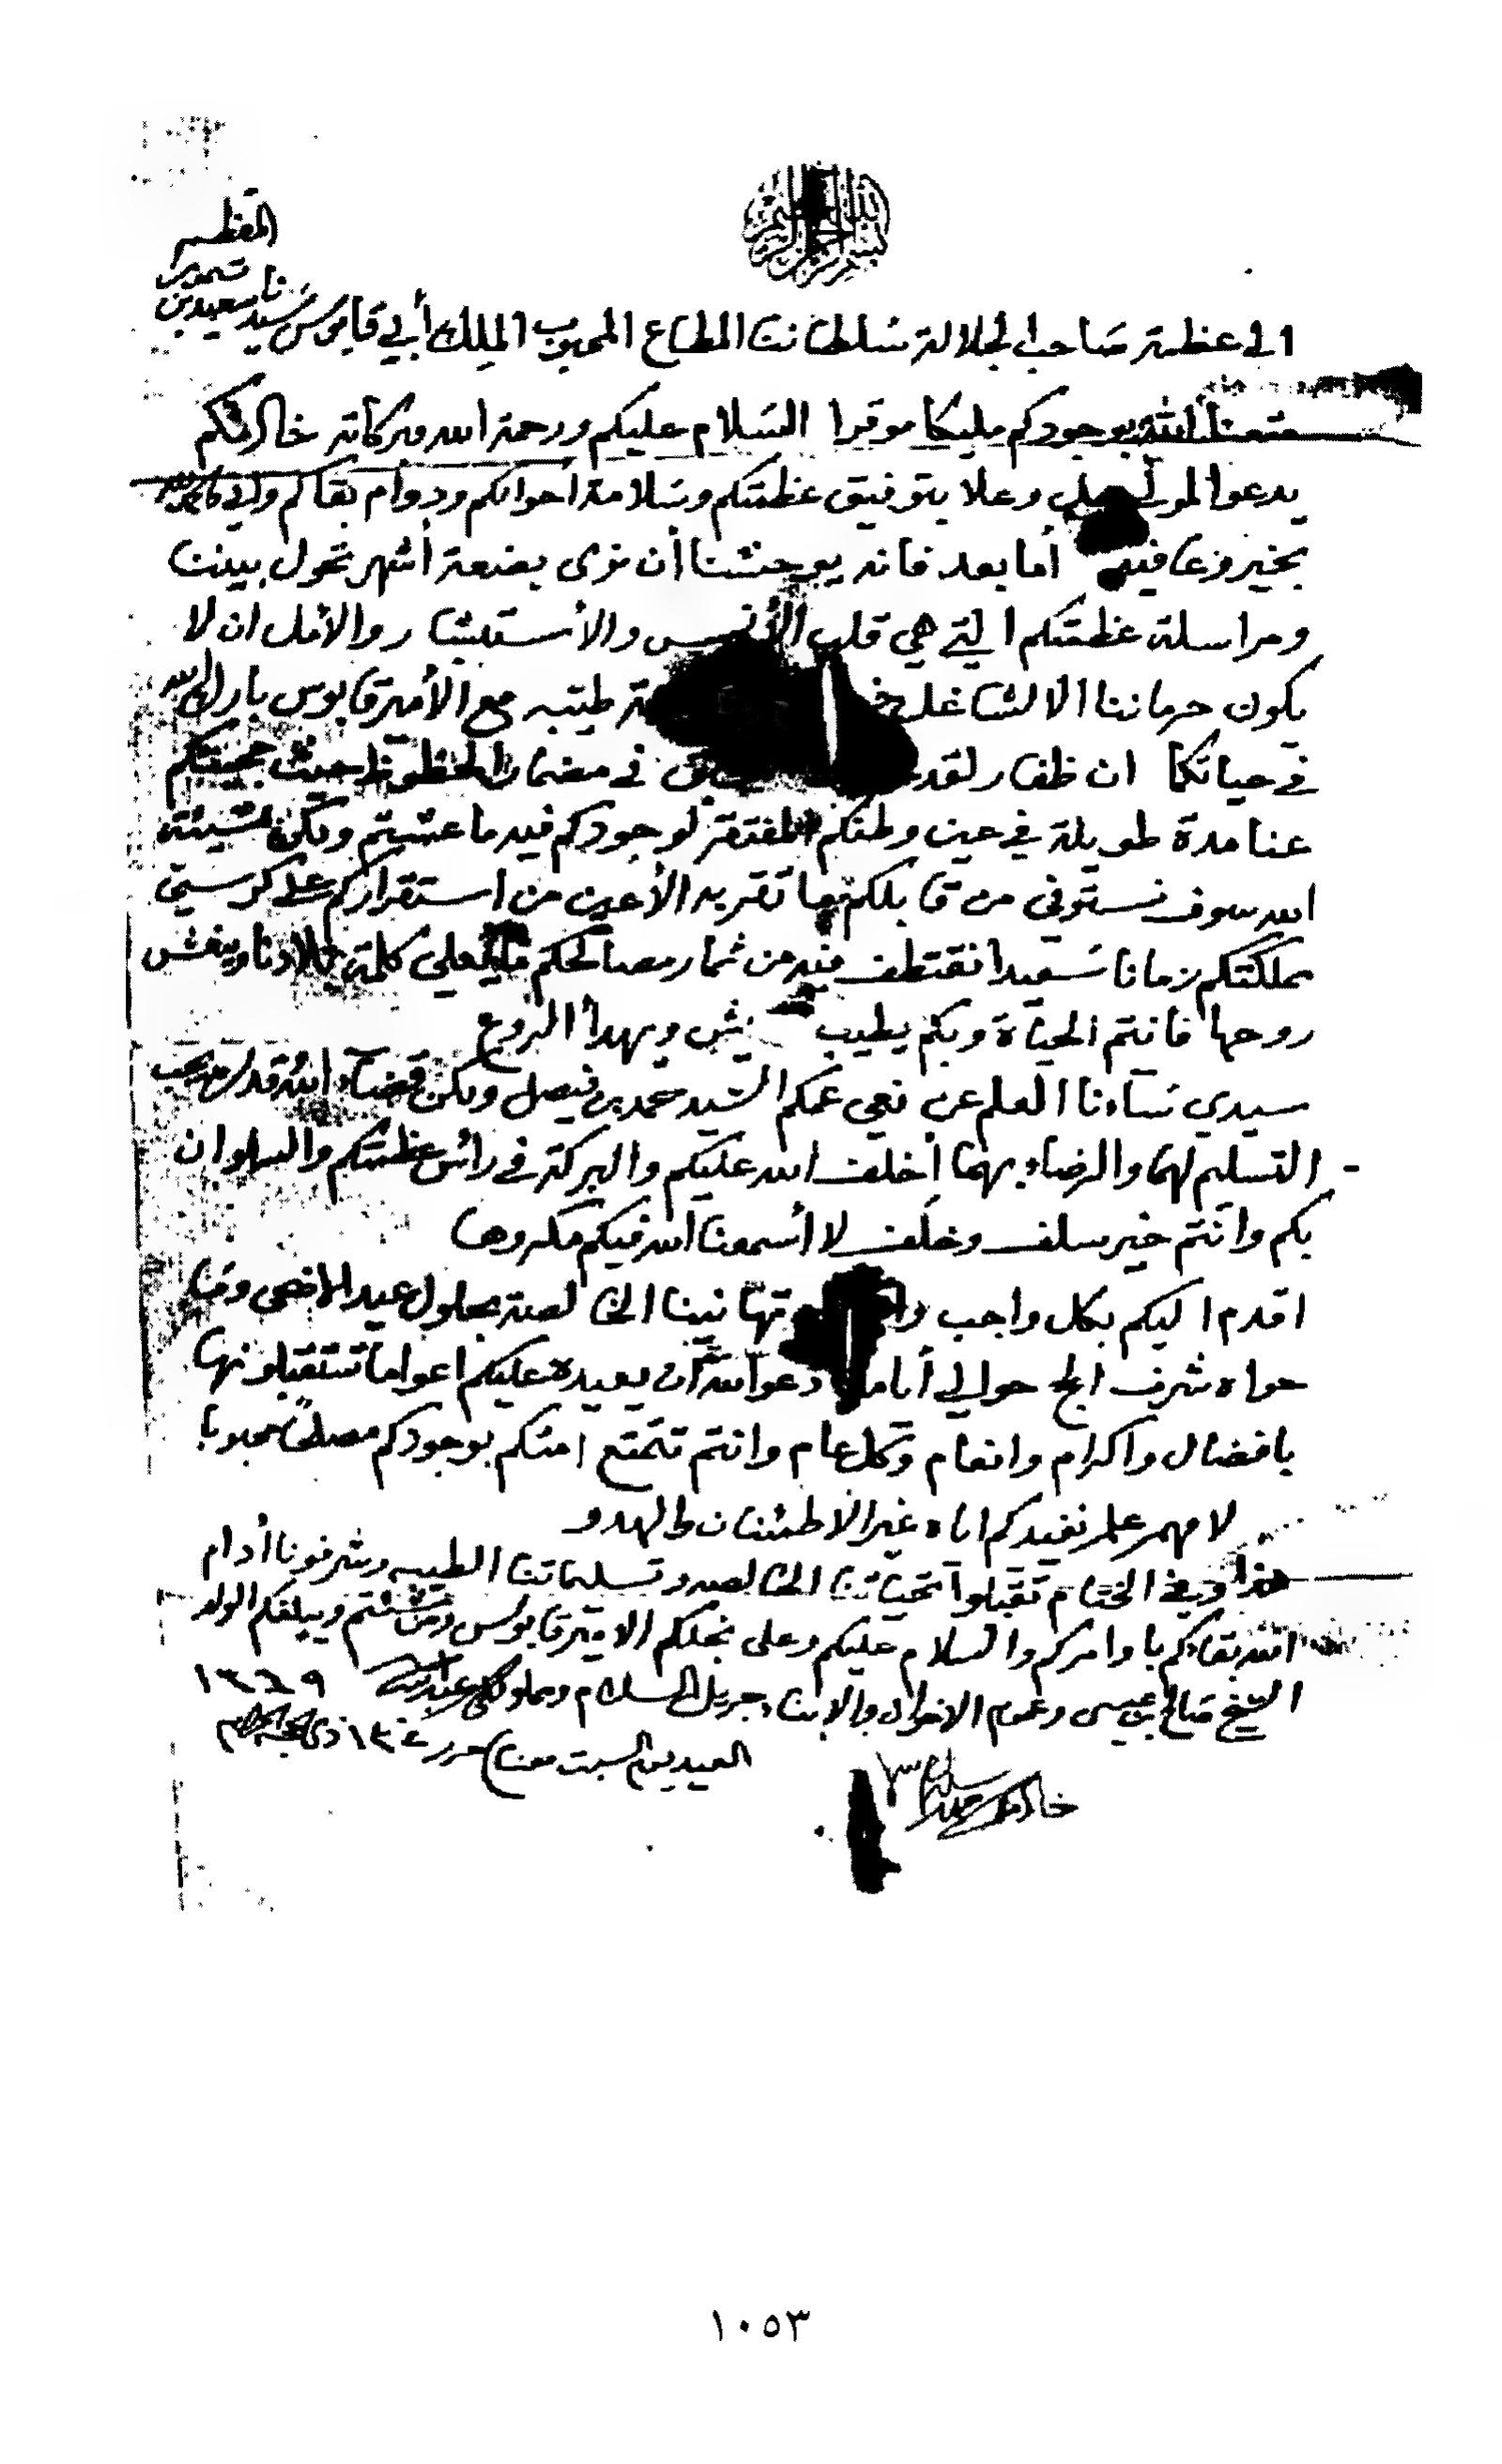 بسم الله الرحمن الرحيم
الى عظمة صاحب الجلالة سلطاننا المطاع المحبوب الملك أبي قابوس سيدنا سعيد بن تيمور المعظم
متعنا الله بوجودكم مليكا موقرا السلام عليكم ورحمة الله وبركاته خادمكم
يدعوا المولى جل وعلا بتوفيق عظمتكم وسلامة أحوالكم ودوام بقاكم
بخير وعافيه أما بعد فانه يوحشنا أن نرى بضعة أشهر تحول بيننا
ومراسلة عظمتكم التي هي قلب الأنس والأستبشار والأمل ان لا
يكون حرماننا الا لشاغل طيبه مع الأمير قابوس بارك الله
في حياتكما ان ظفار لقد في مضمار الحظوظ حيث حجبتكم
عنا مدة طويلة في عين وطنكم المفتقر لوجودكم فيه ما عشتم ولكن بمشيئة
الله سوف نستوفي من قابلكم بما تقر به الأعين من استقراركم على كرسي
مملكتكم زمانا سعيدا نقتطف فيه من ثمار مصالحكم ما يعلي كلمة بلادنا وينعش
روحها فانتم الحياة وبكم يطيب ويهدأ الروع
سيدي سائنا العلم عن نعي عمكم السيد حمد بن فيصل ولكن قضاء الله وقدره يجب
التسليم لهما والرضاء بهما أخلف الله عليكم والبركة في رائس عظمتكم والسلوان
بكم وانتم خير سلف وخلف لا أسمعنا الله فيكم مكروها
اقدم اليكم بكل واجب تهانينا الخالصة بحلول عيد الاضحى وما
حواه شرف الحج حوالي أيامه دعوا الله أن يعيده عليكم اعواما تستقبلونها
بافضال واكرام وانعام وكل عام وانتم تتمتع امتكم بوجودكم مصلحا محبوبا
لا مهم علم نفيدكم اياه غير الاطمئنان والهدو
هذا وفي الختام تقبلوا تحياتنا الخالصه وتسليماتنا الطيبه وشرفونا أدام
الله بقاءكم باوامركم والسلام عليكم وعلى نجلكم الامير قابوس ومن شئتم ويبلغكم الولد
الشيخ صالح بن عيسى وعموم الاخوان والابناء جزيل السلام
العيد يوم السبت معنا حرر ذي الحجة الحرام ١٣٦٩
خادمكم
١٠٥٣